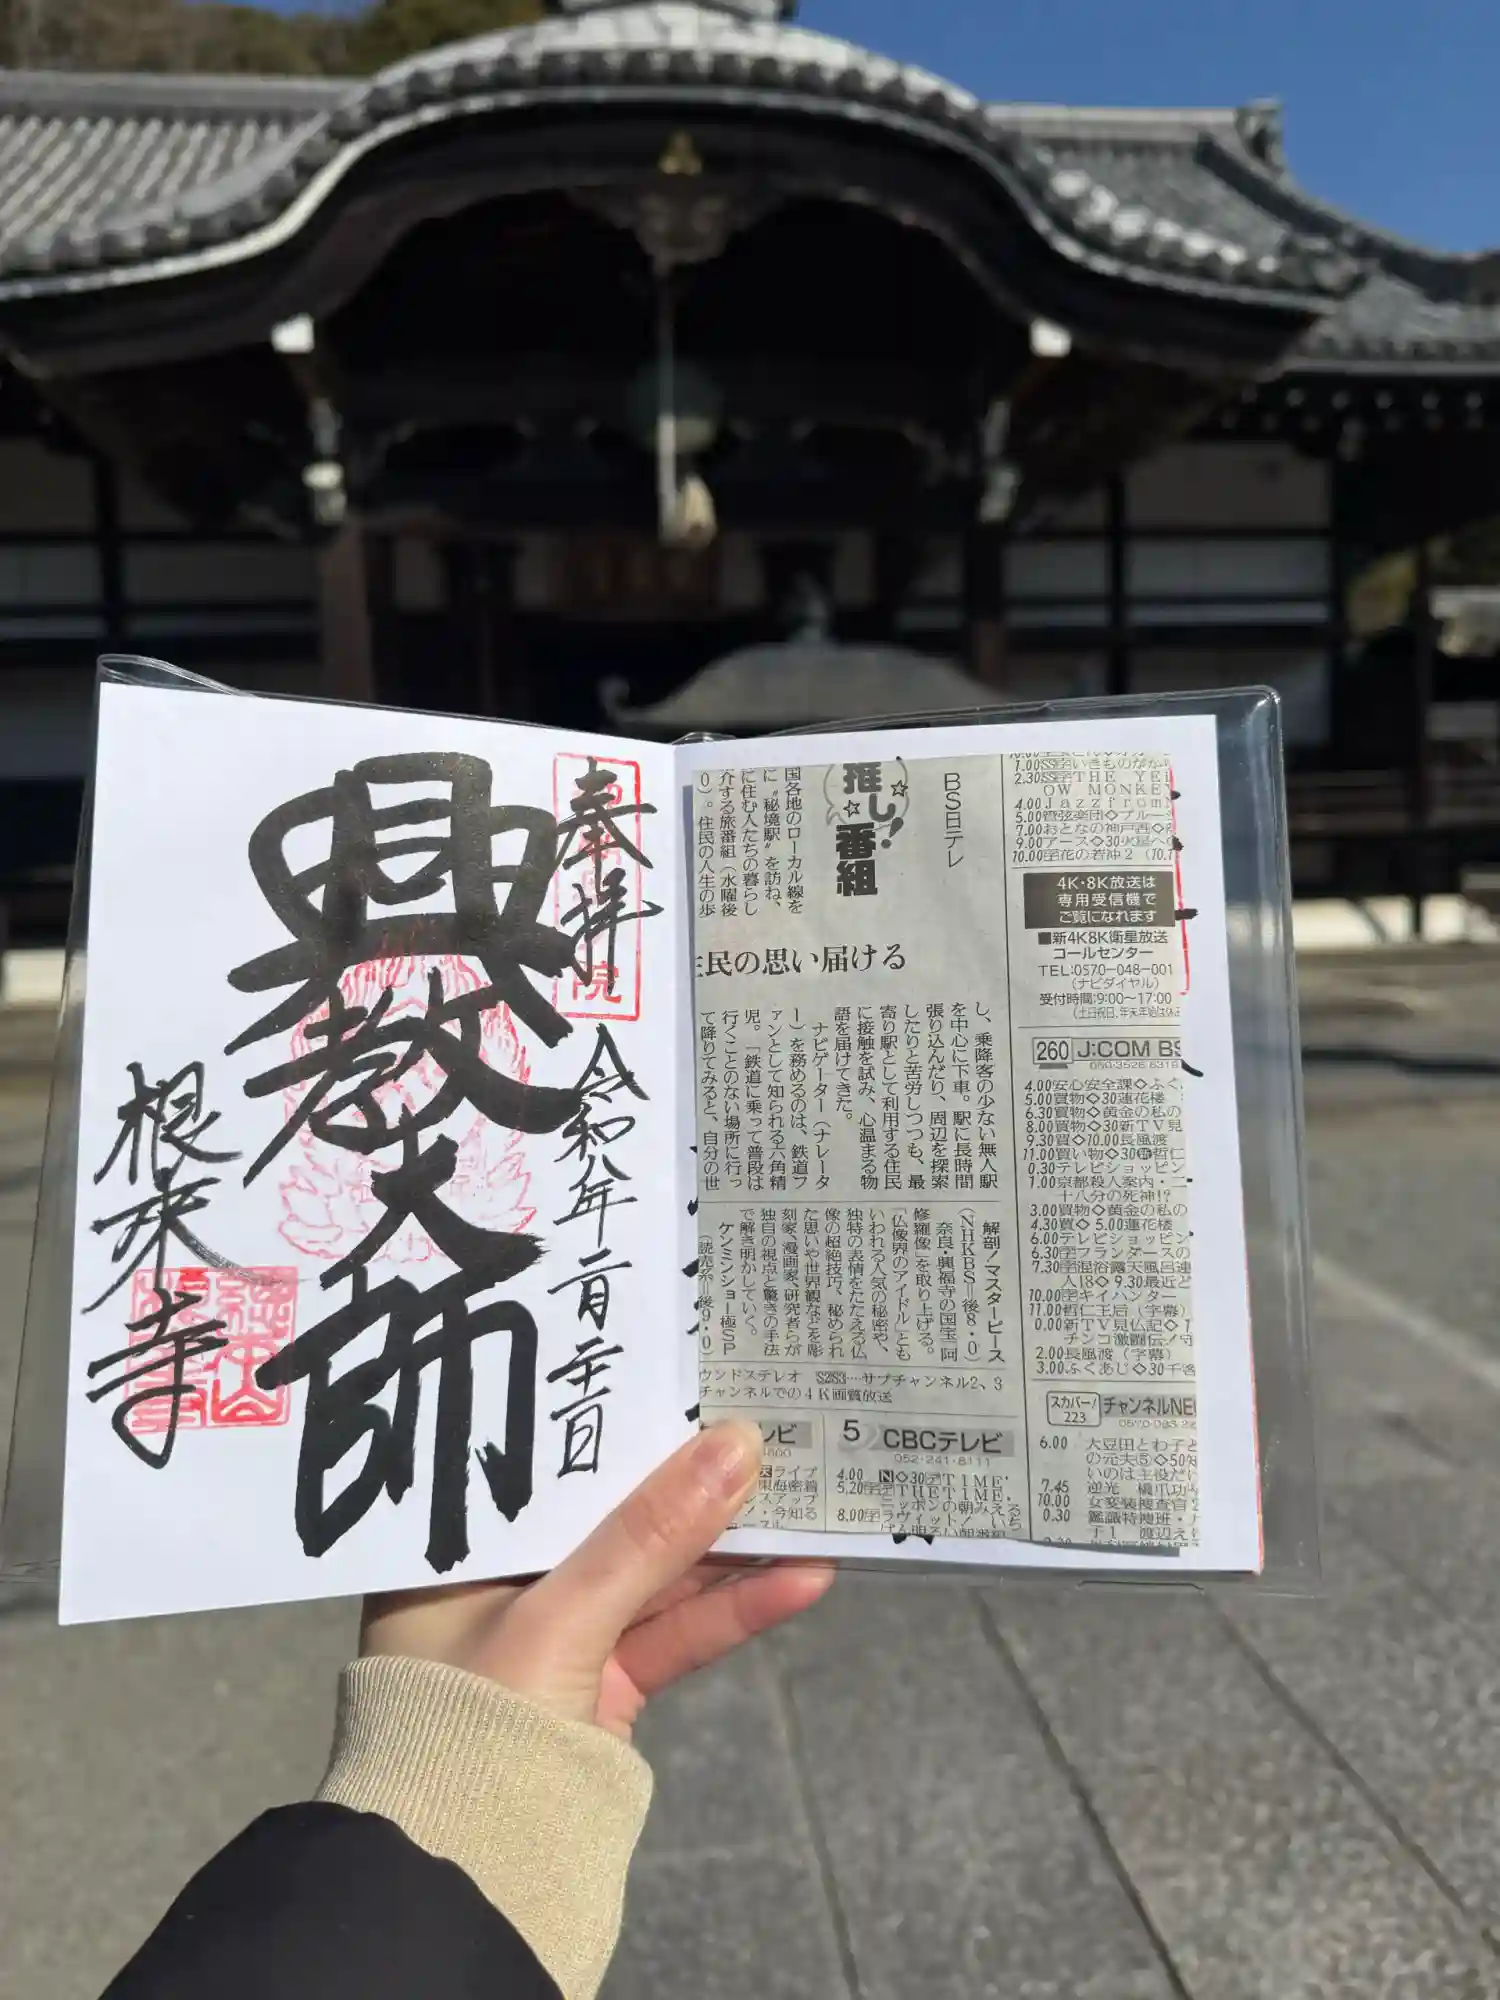 奉拝
令和八年二月二十日
興教大師
根来寺
院
BS日テレ
推し!
番組
国各地のローカル線を
に“秘境駅”を訪ね、
に住む人たちの暮らし
介する旅番組(水曜後
0)。住民の人生の歩
民の思い届ける
し、乗降客の少ない無人駅
を中心に下車。駅に長時間
張り込んだり、周辺を探索
したりと苦労しつつも、最
寄り駅として利用する住民
に接触を試み、心温まる物
語を届けてきた。
ナビゲーター(ナレータ
ー)を務めるのは、鉄道フ
ァンとして知られる六角精
児。「鉄道に乗って普段は
行くことのない場所に行っ
て降りてみると、自分の世
解剖!マスターピース
(NHKBS=後8・0)
奈良・興福寺の国宝「阿
修羅像」を取り上げる。
「仏像界のアイドル」とも
いわれる人気の秘密や、
独特の表情をたたえる仏
像の超絶技巧、秘められ
た思いや世界観などを彫
刻家、漫画家、研究者らが
独自の視点と驚きの手法
で解き明かしていく。
ケンミンショー極SP
(読売系=後9・0)
ウンドステレオ S2S3…サブチャンネル2、3
チャンネルでの4K画質放送
レビ
5 CBCテレビ
052-241-8111
4.00 N◇30字TIME
5.20字THETIME,
8.00字ラヴィット!
1.00SS字いきものがか
2.30SS字THE YE
OW MONKEY
4.00Jazzfrom
5.00管弦楽団◇ブルー
7.00おとなの神戸西◇
9.00アース◇30火星へ
10.00字花の若冲2(10.1
4K・8K放送は
専用受信機で
ご覧になれます
■新4K8K衛星放送
コールセンター
TEL:0570-048-001
(ナビダイヤル)
受付時間:9:00〜17:00
260 J:COM BS
4.00安心安全課◇ふく
5.00買物◇30蓮花楼
6.30買物◇黄金の私の
8.00買物◇30新TV見
9.30買◇10.00長風渡
11.00買い物◇30 哲仁
0.30テレビショッピン
1.00京都殺人案内・二
十八分の死神!?
3.00買物◇黄金の私の
4.30買◇5.00蓮花楼
6.00テレビショッピン
6.30字フランダースの
7.30字混浴露天風呂連
人18◇9.30最近ど
10.00字キイハンター
11.00哲仁王后(字幕)
0.00新TV見仏記◇T
チンコ激闘伝!守
2.00長風渡(字幕)
3.00ふくあじ◇30千客
スカパー!
223
チャンネルNE
6.00 大豆田とわ子と
の元夫⑤◇50知
いのは主役だけ
7.45 逆光
10.00 女装捜査官2
0.30 鑑識特捜班・